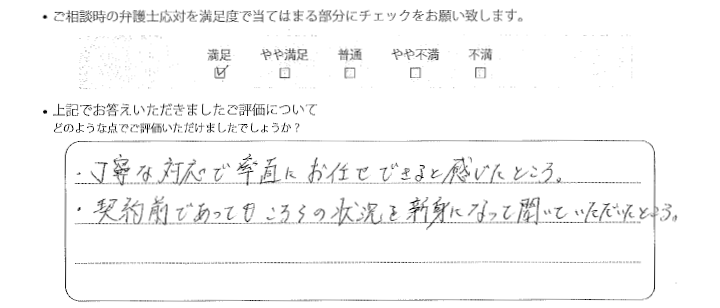 • ご相談時の弁護士応対を満足度で当てはまる部分にチェックをお願い致します。
満足 やや満足 普通 やや不満 不満
☑ □ □ □ □
• 上記でお答えいただきましたご評価について
どのような点でご評価いただけましたでしょうか？
・丁寧な対応で率直にお任せできると感じたところ。
・契約前であってもこちらの状況を親身になって聞いていただいたところ。